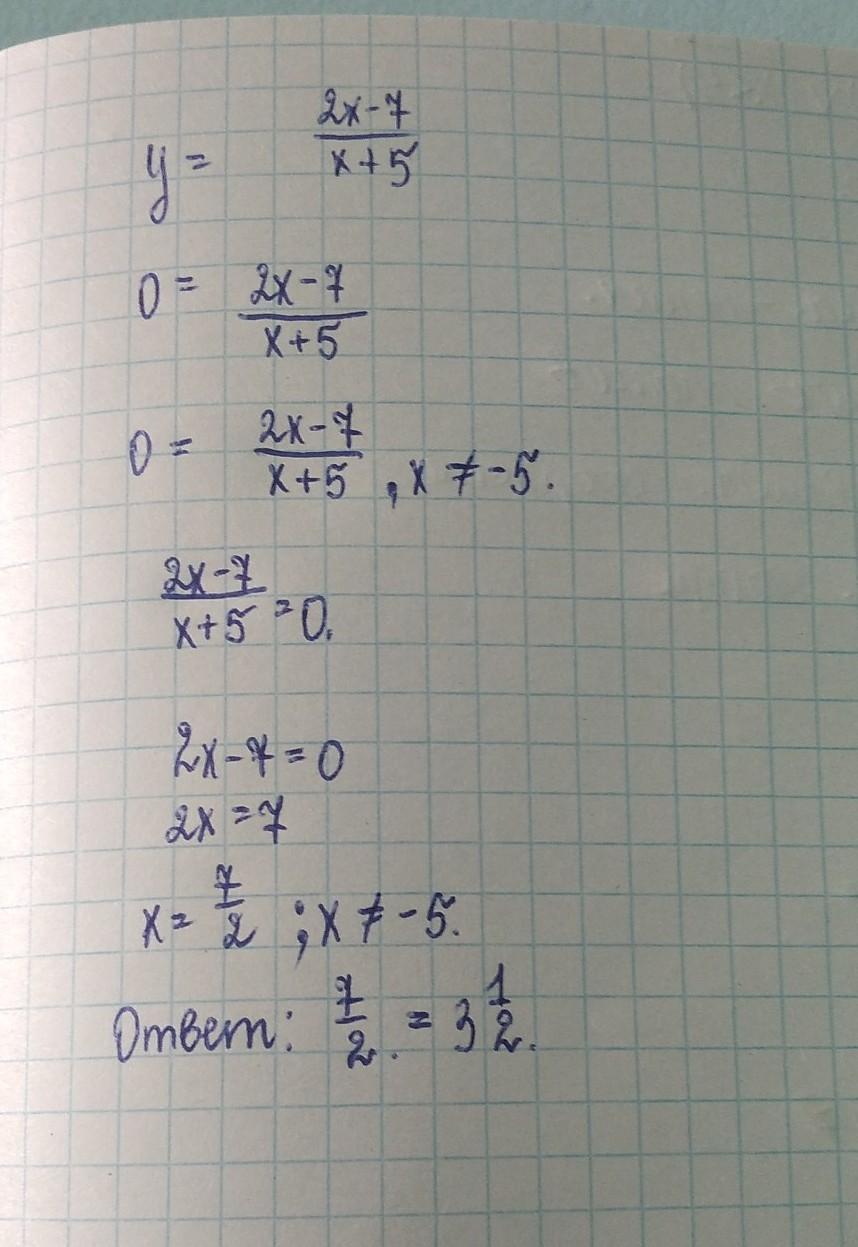 y = (2x-7)/(x+5)
0 = (2x-7)/(x+5)
0 = (2x-7)/(x+5) , x ≠ -5.
(2x-7)/(x+5) = 0.
2x-7=0
2x=7
x= 7/2 ; x ≠ -5.
Ответ: 7/2. = 3 1/2.